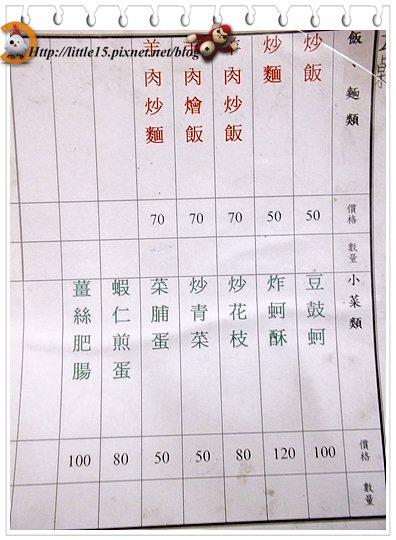 Http://little15.pixnet.net/blog
飯、麵類
炒飯
炒麵
羊肉炒飯
羊肉燴飯
羊肉炒麵
價格
50
50
70
70
70
數量
小菜類
豆鼓蚵
炸蚵酥
炒花枝
炒青菜
菜脯蛋
蝦仁煎蛋
薑絲肥腸
價格
100
120
80
50
50
80
100
數量